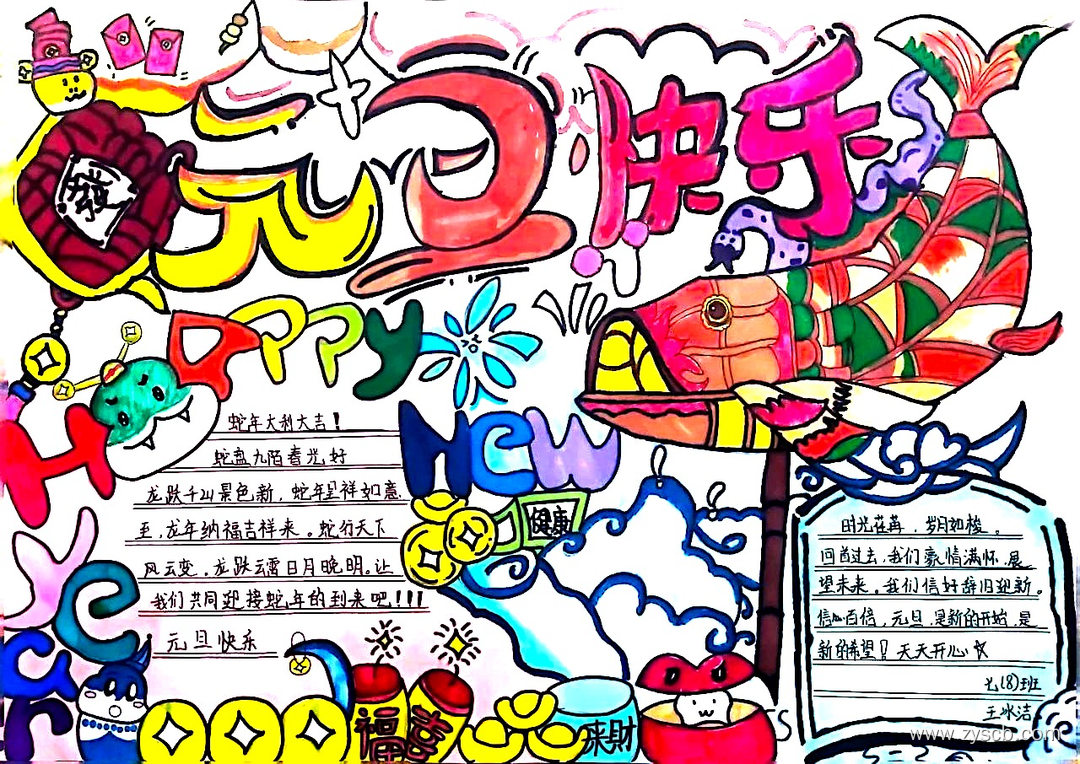 元旦快乐
發
Happy
New
Year
蛇年大利大吉!
蛇盘九陌春光好
龙跃千山景色新,蛇年呈祥如意
至,龙年纳福吉祥来。蛇行天下
风云变,龙跃云霄日月晚明。让
我们共同迎接蛇年的到来吧!!!
元旦快乐
健康
时光荏苒,岁月如梭。
回首过去,我们豪情满怀,展
望未来,我们信好辞旧迎新。
信心百倍,元旦,是新的开始,是
新的希望!天天开心
七(8)班
王冰洁
福
喜
来財
www.zyscb.com